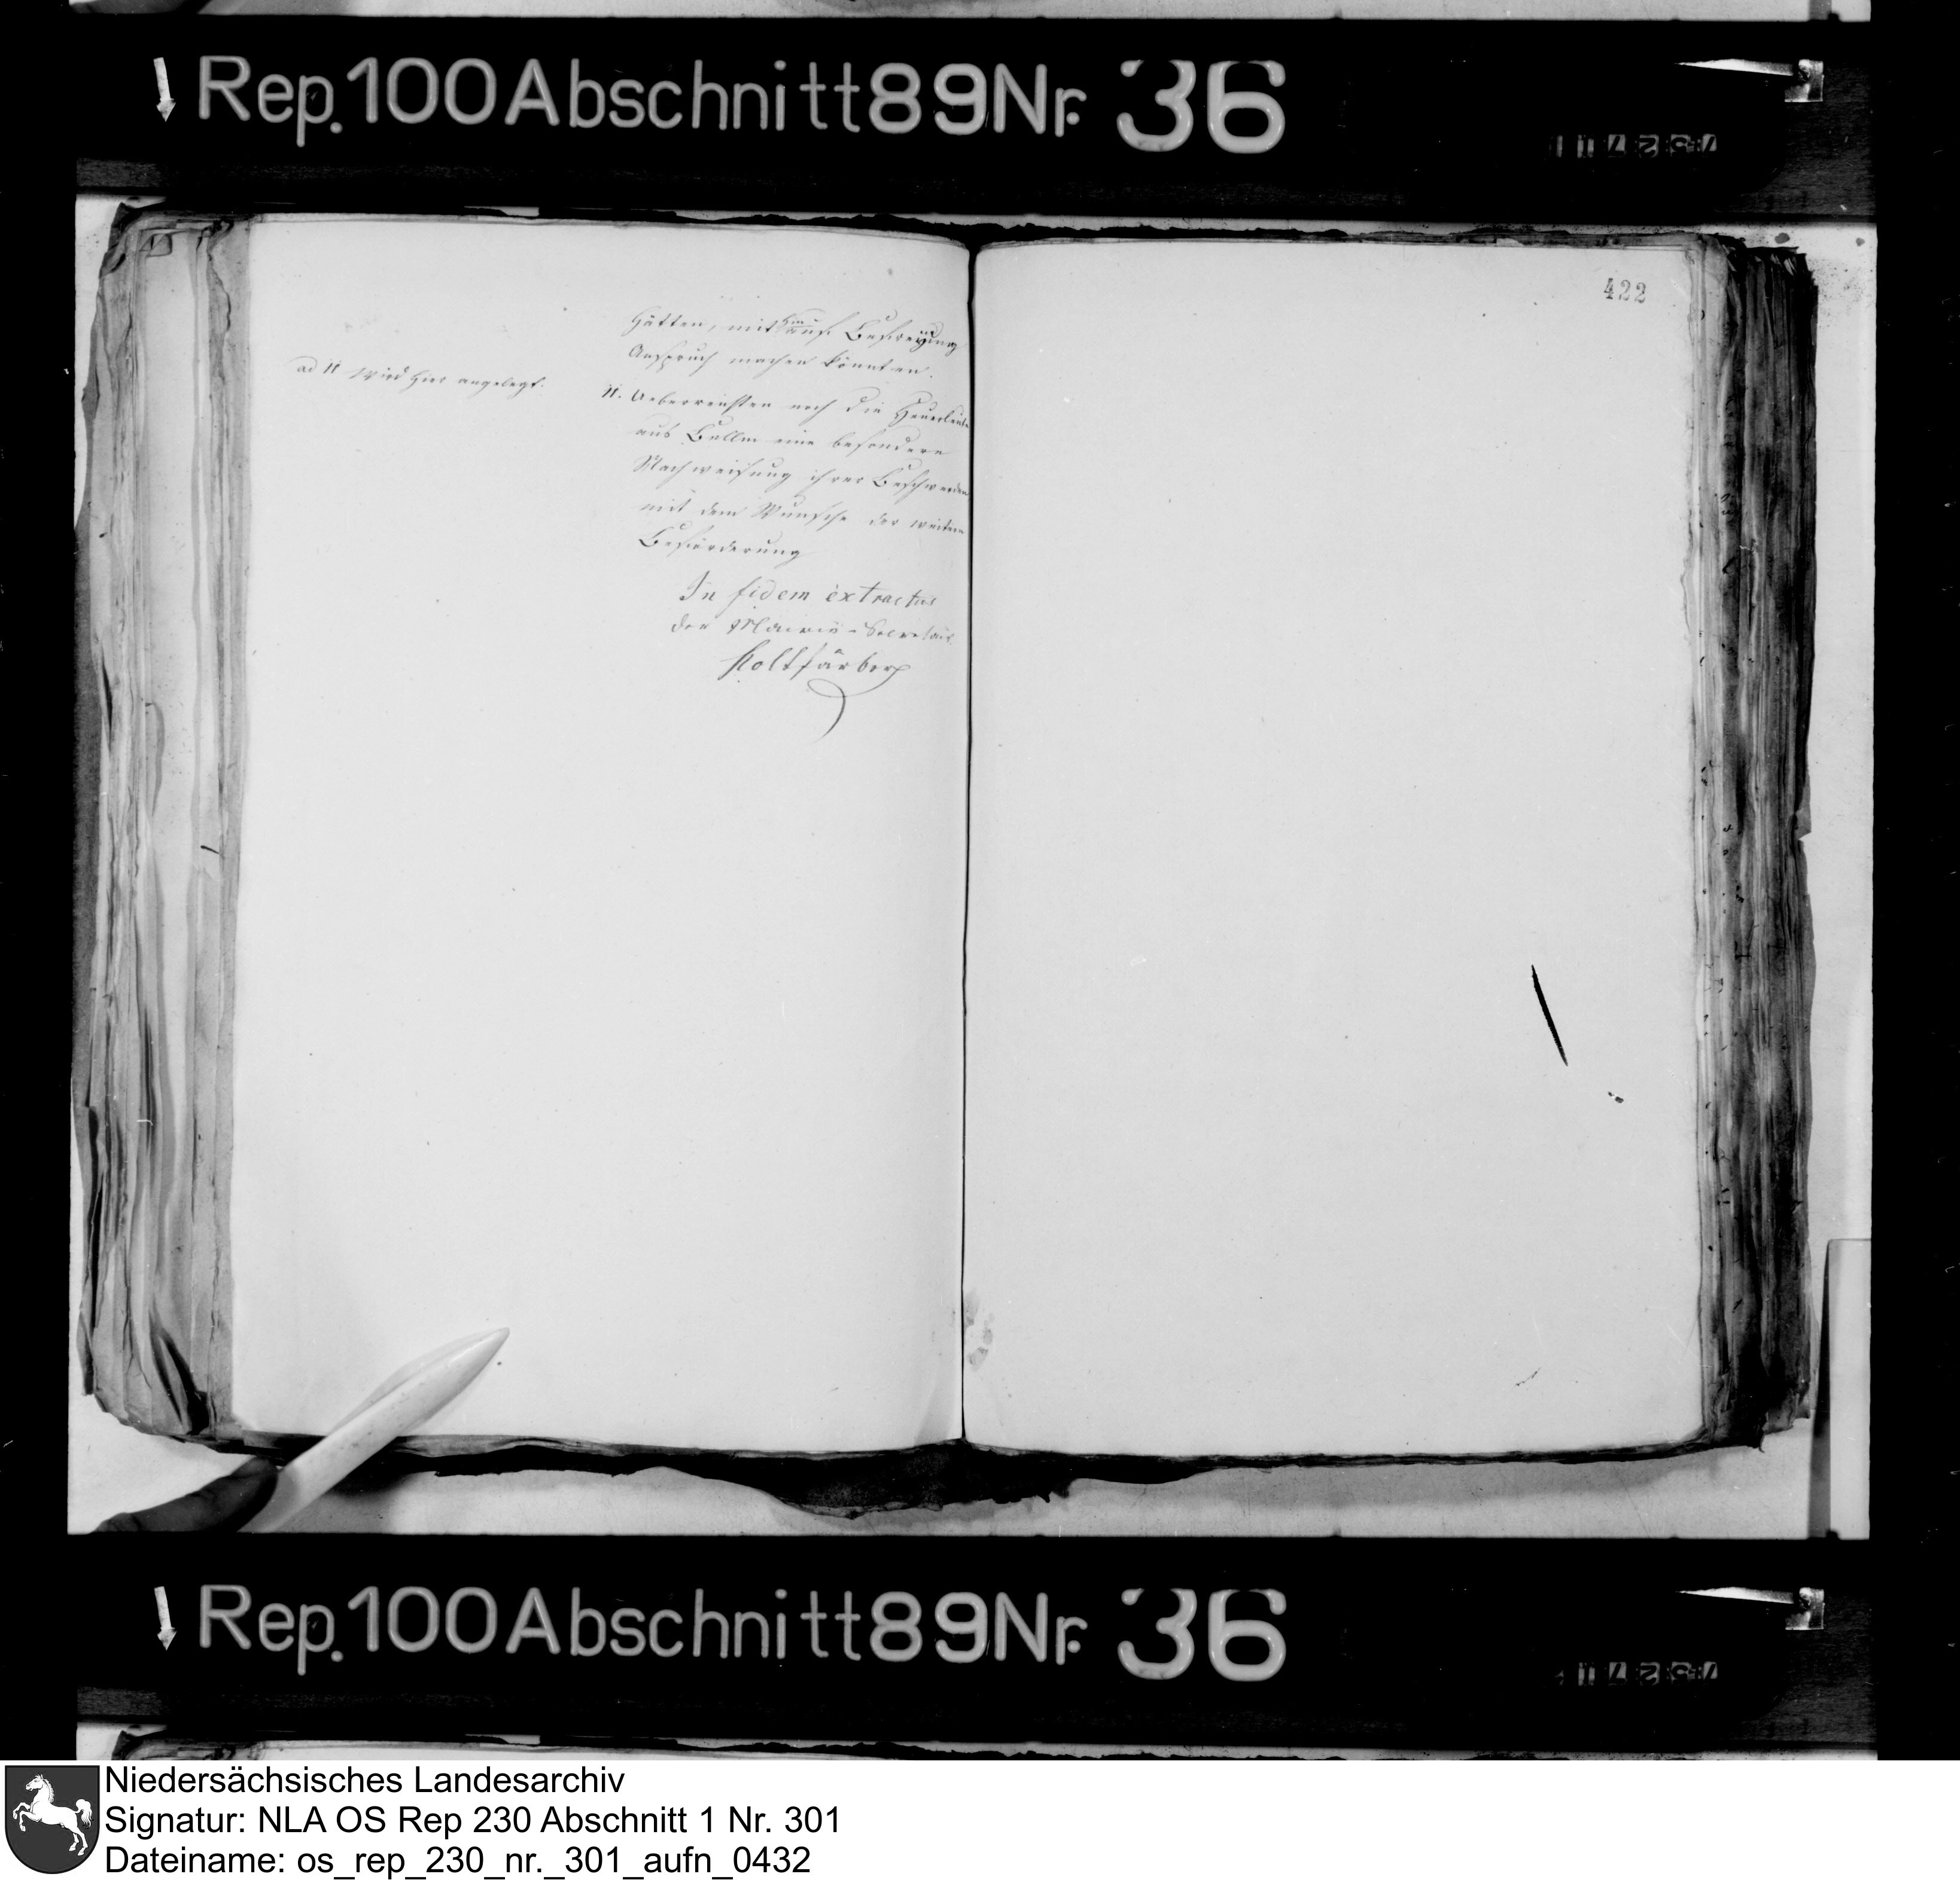 Rep. 100 Abschnitt 89 Nr. 36
422
hätten, mithin auf Befreyung
Anspruch machen könnten.
ad 11 Wird hier angelegt.
11. Ueberreichten noch die Heuerleute
aus Bellm eine besondere
Nachweisung ihrer Beschwerden
mit dem Wunsche der weitern
Beförderung
In fidem extractus
der Mairie-Secretair
Holtfärber
Rep. 100 Abschnitt 89 Nr. 36
Niedersächsisches Landesarchiv
Signatur: NLA OS Rep 230 Abschnitt 1 Nr. 301
Dateiname: os_rep_230_nr._301_aufn_0432